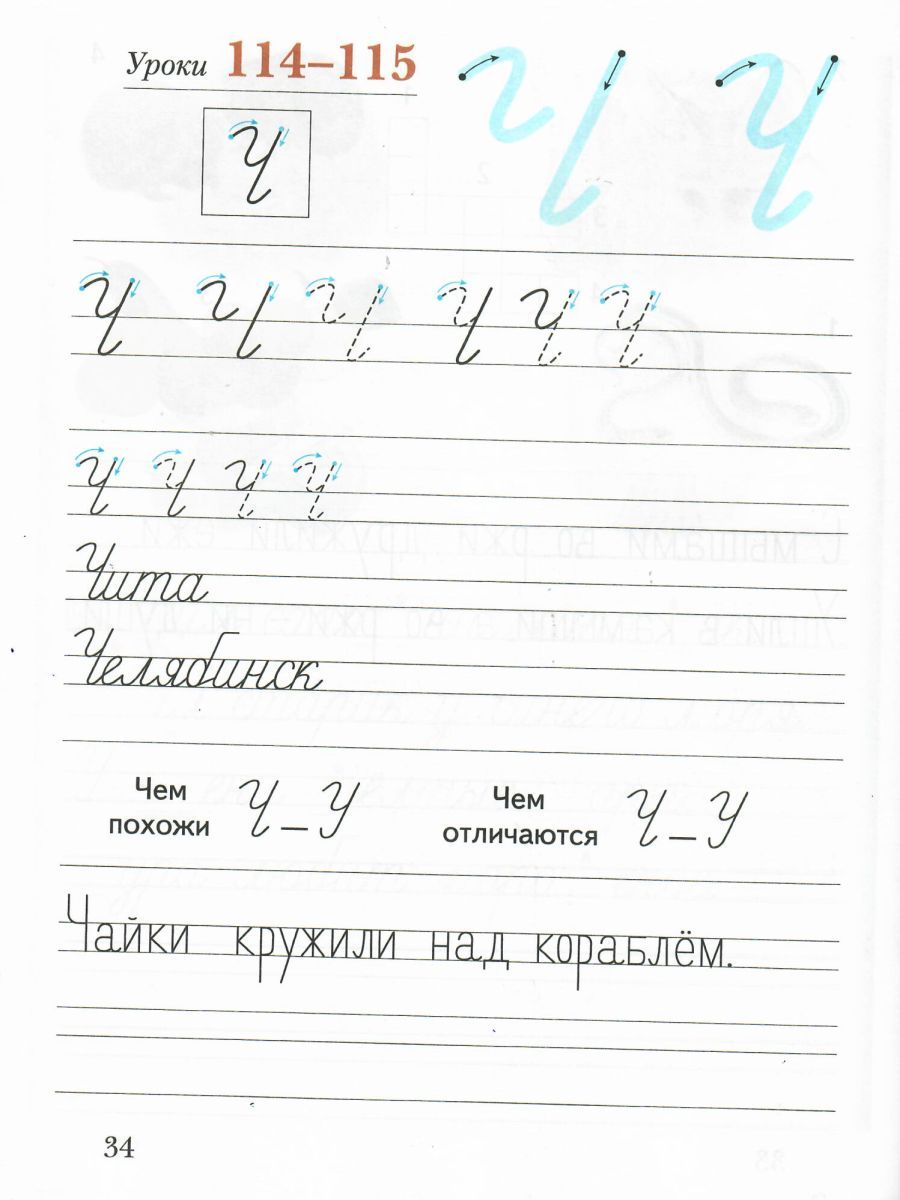 Уроки 114–115
Ч
Ч Ч Ч Ч Ч Ч
Ч Ч Ч Ч
Чита
Челябинск
Чем похожи Ч – У
Чем отличаются Ч – У
Чайки кружили над кораблём.
34